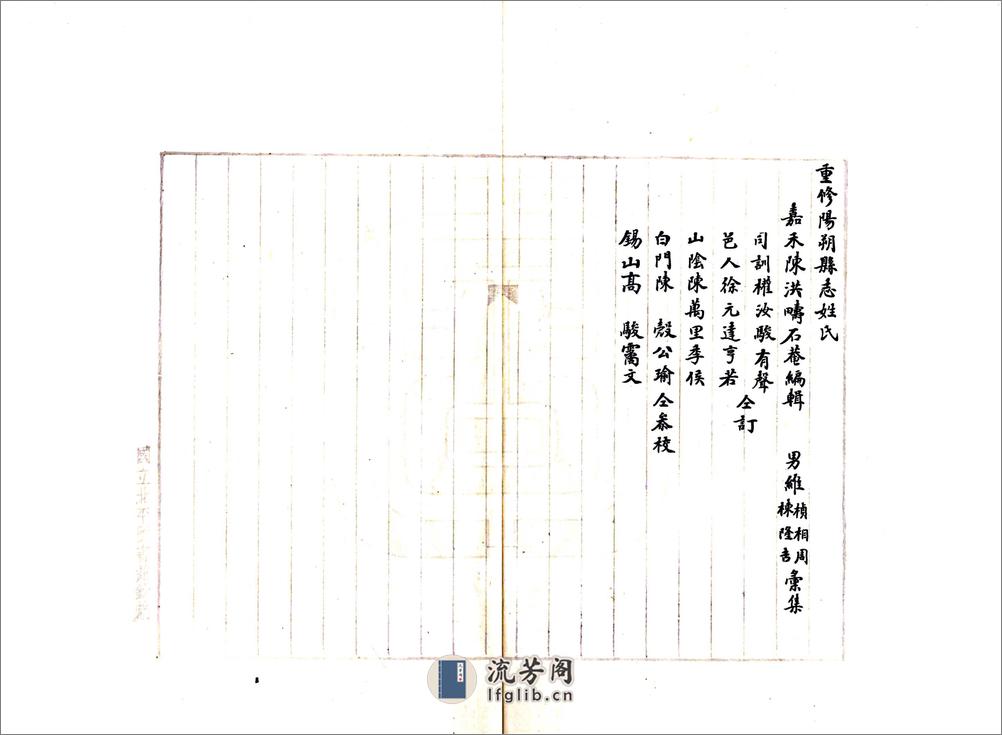 重修陽朔縣志姓氏
嘉禾陳洪疇石菴編輯 男維楨相周棟隆吉彙集
司訓權汝駿有聲
邑人徐元達亨若 仝訂
山陰陳萬里季侯
白門陳 殼公瑜 仝叅校
錫山高 駿霱文
國立北平
流芳阁
lfglib.cn